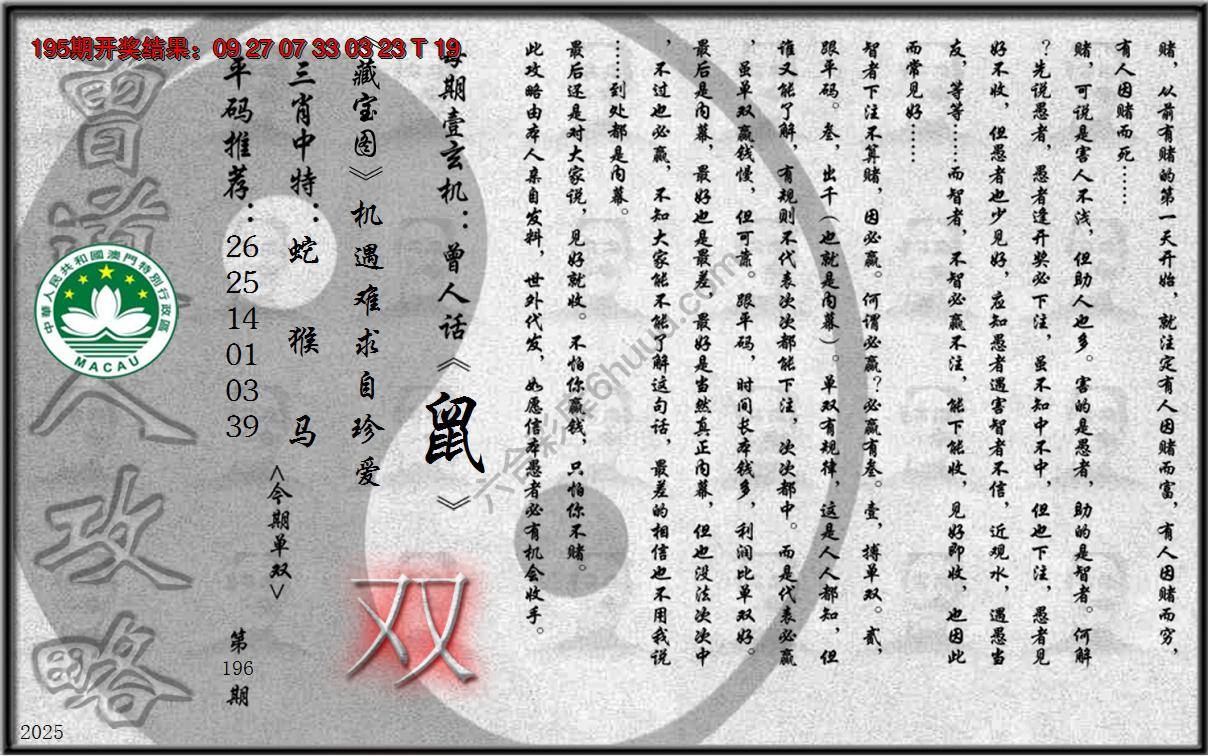 195期开奖结果：09 27 07 33 03 23 T 19
赌，从前有赌的第一天开始，就注定有人因赌而富，有人因赌而穷，
有人因赌而死……
赌，可说是害人不浅，但助人也多。害的是愚者，助的是智者。何解
？先说愚者，愚者逢开奖必下注，虽不知中不中，但也下注，愚者见
好不收，但愚者也少见好，应知愚者遇害智者不信，近观水，遇愚当
友，等等……而智者，不智必赢不注，能下能收，见好即收，也因此
而常见好……
智者下注不算赌，因必赢。何谓必赢？必赢有叁。壹，搏单双。贰，
跟平码。叁，出千（也就是内幕）。单双有规律，这是人人都知，但
谁又能了解，有规则不代表次次都能下注，次次都中。而是代表必赢
，虽单双赢钱慢，但可靠。跟平码，时间长本钱多，利润比单双好。
最后是内幕，最好也是最差，最好是当然真正内幕，但也没法次次中
，不过也必赢，不知大家能不能了解这句话，最差的相信也不用我说
……到处都是内幕。
最后还是对大家说，见好就收。不怕你赢钱，只怕你不赌。
此攻略由本人亲自发料，世外代发，如愿信本愚者必有机会收手。
每期壹玄机：曾人话《鼠》
《藏宝图》机遇难求自珍爱
三肖中特：蛇 猴 马
平码推荐：26 25 14 01 03 39
<今期单双>
双
第196期
曾道人攻略
中華人民共和國澳門特別行政區
MACAU
六合彩库6huuu.com
2025